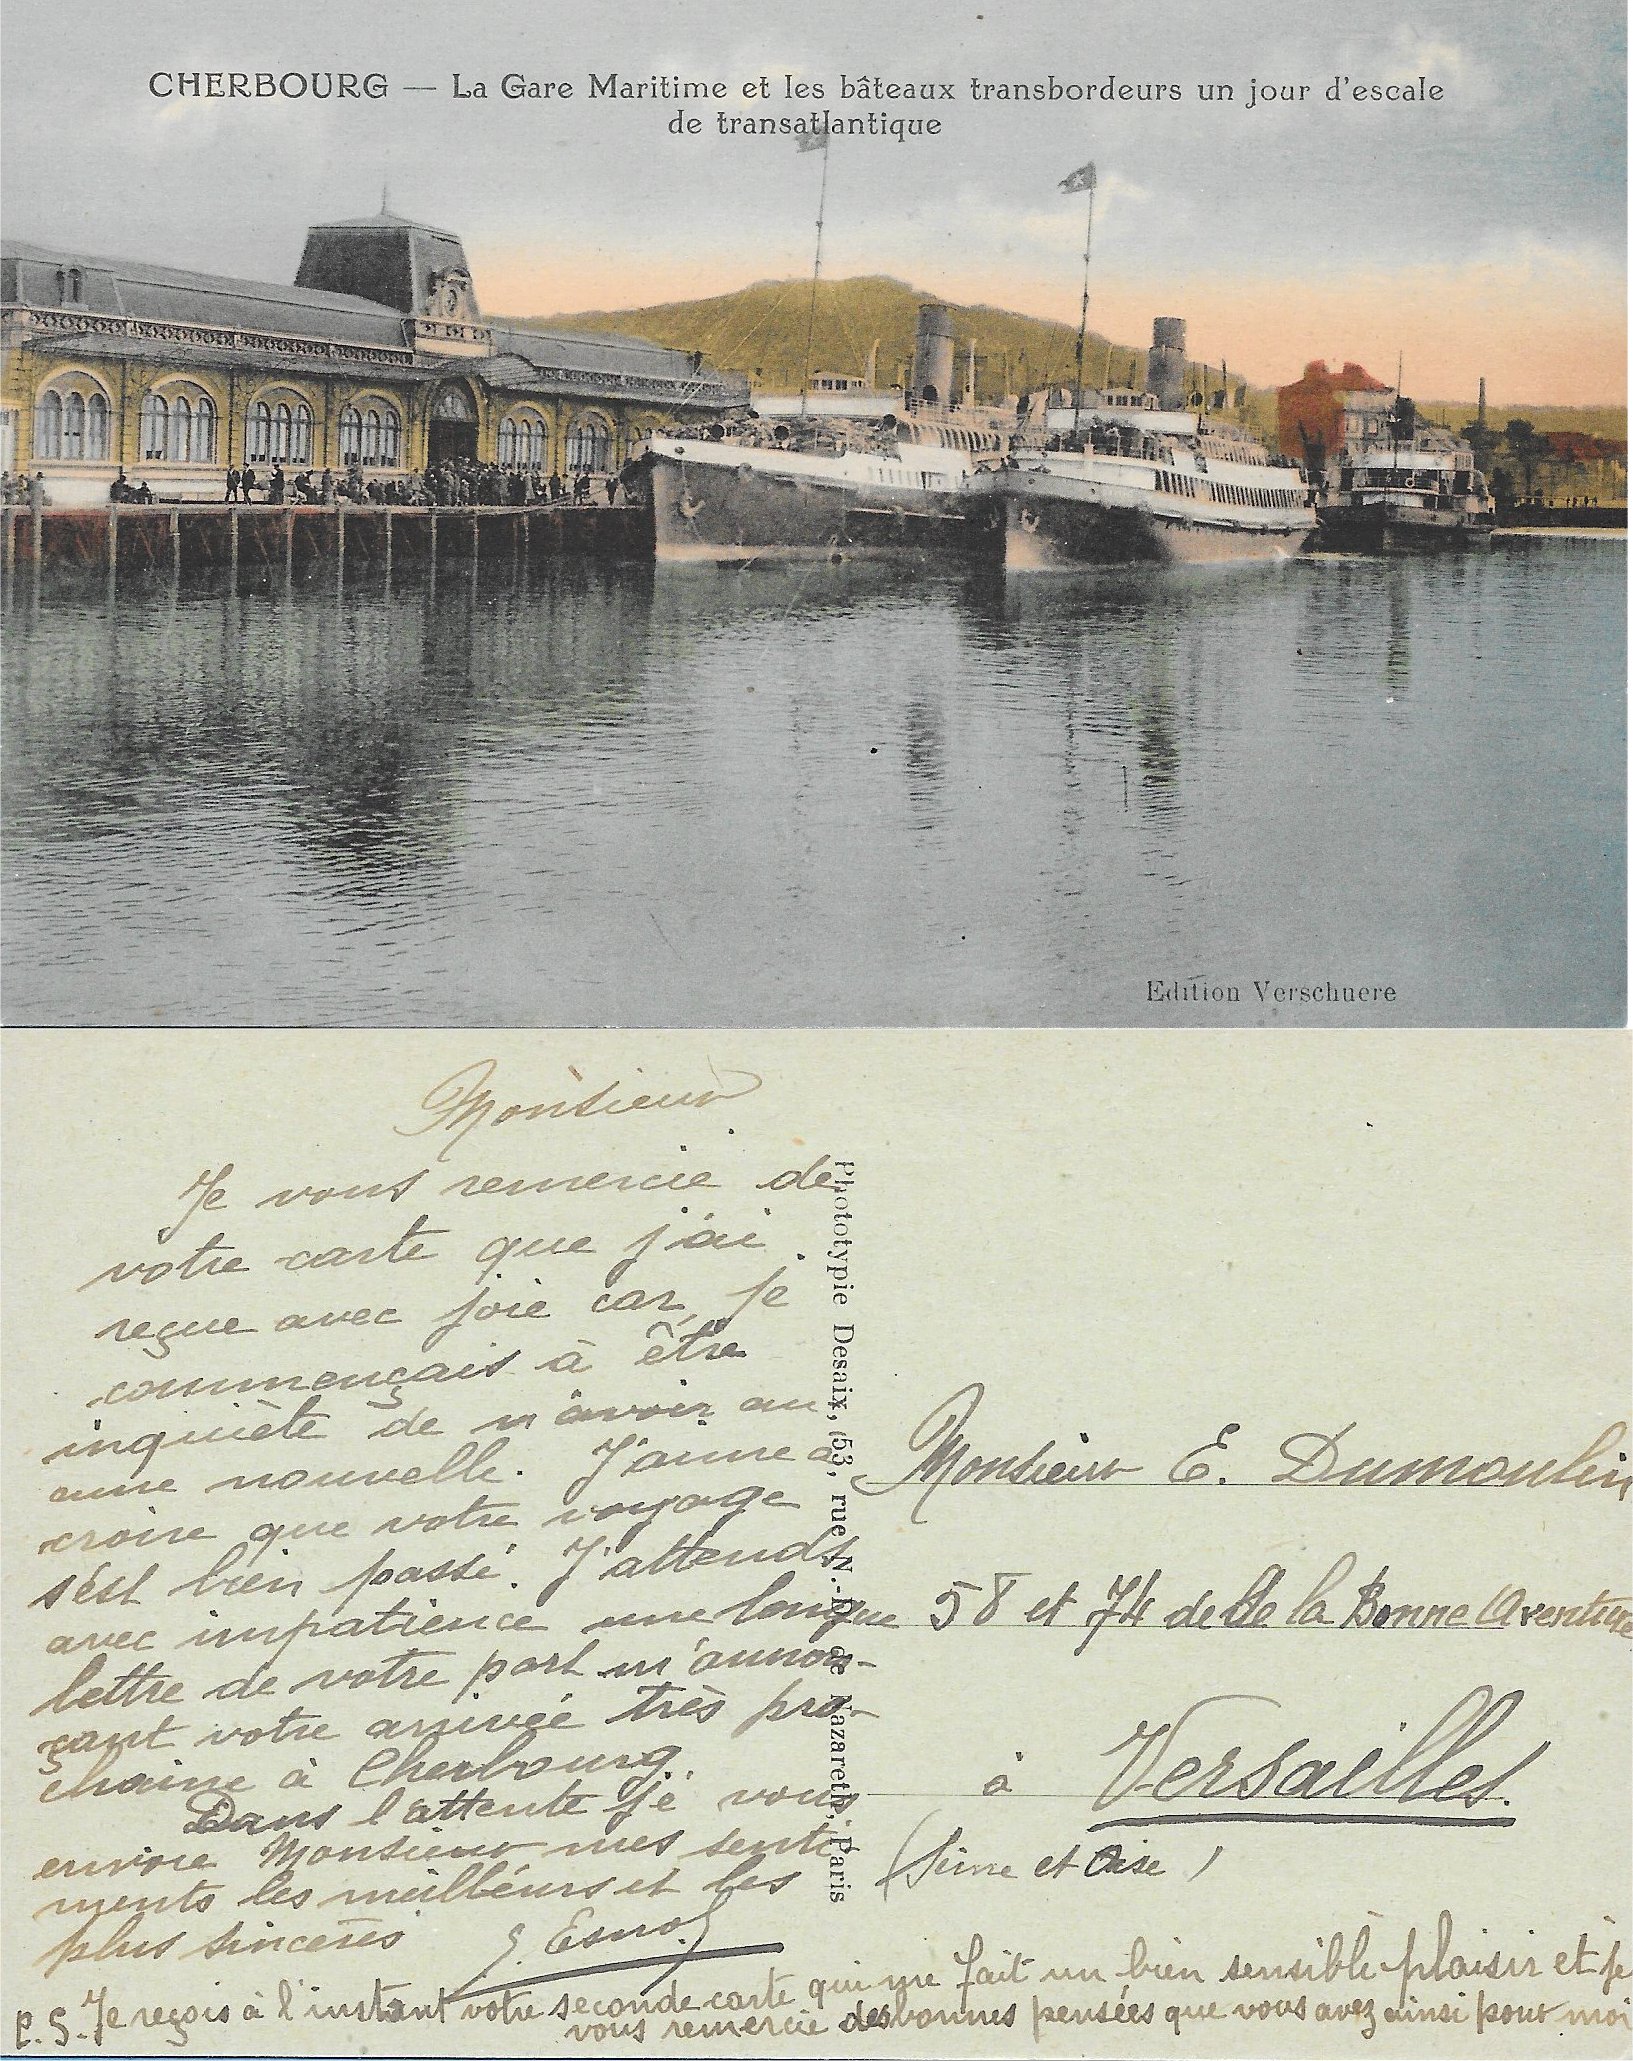 CHERBOURG — La Gare Maritime et les bâteaux transbordeurs un jour d'escale
de transatlantique
Edition Verschuere
Monsieur
Je vous remercie de
votre carte que j'ai
reçue avec joie car je
commençais à être
inquiète de n'avoir au
cune nouvelle. J'aime à
croire que votre voyage
s'est bien passé. J'attends
avec impatience une longue
lettre de votre part m'annon-
çant votre arrivée très pro-
chaine à Cherbourg.
Dans l'attente je vous
envoie Monsieur mes senti
ments les meilleurs et les
plus sincères
Esnol
P.S. Je reçois à l'instant votre seconde carte qui me fait un bien sensible plaisir et je
vous remercie des bonnes pensées que vous avez ainsi pour moi
Phototypie Desaix, 53, rue N.-D. de Nazareth, Paris
Monsieur E. Dumoulin
58 et 74 de la Bonne Aventure
à Versailles.
(Seine et Oise)